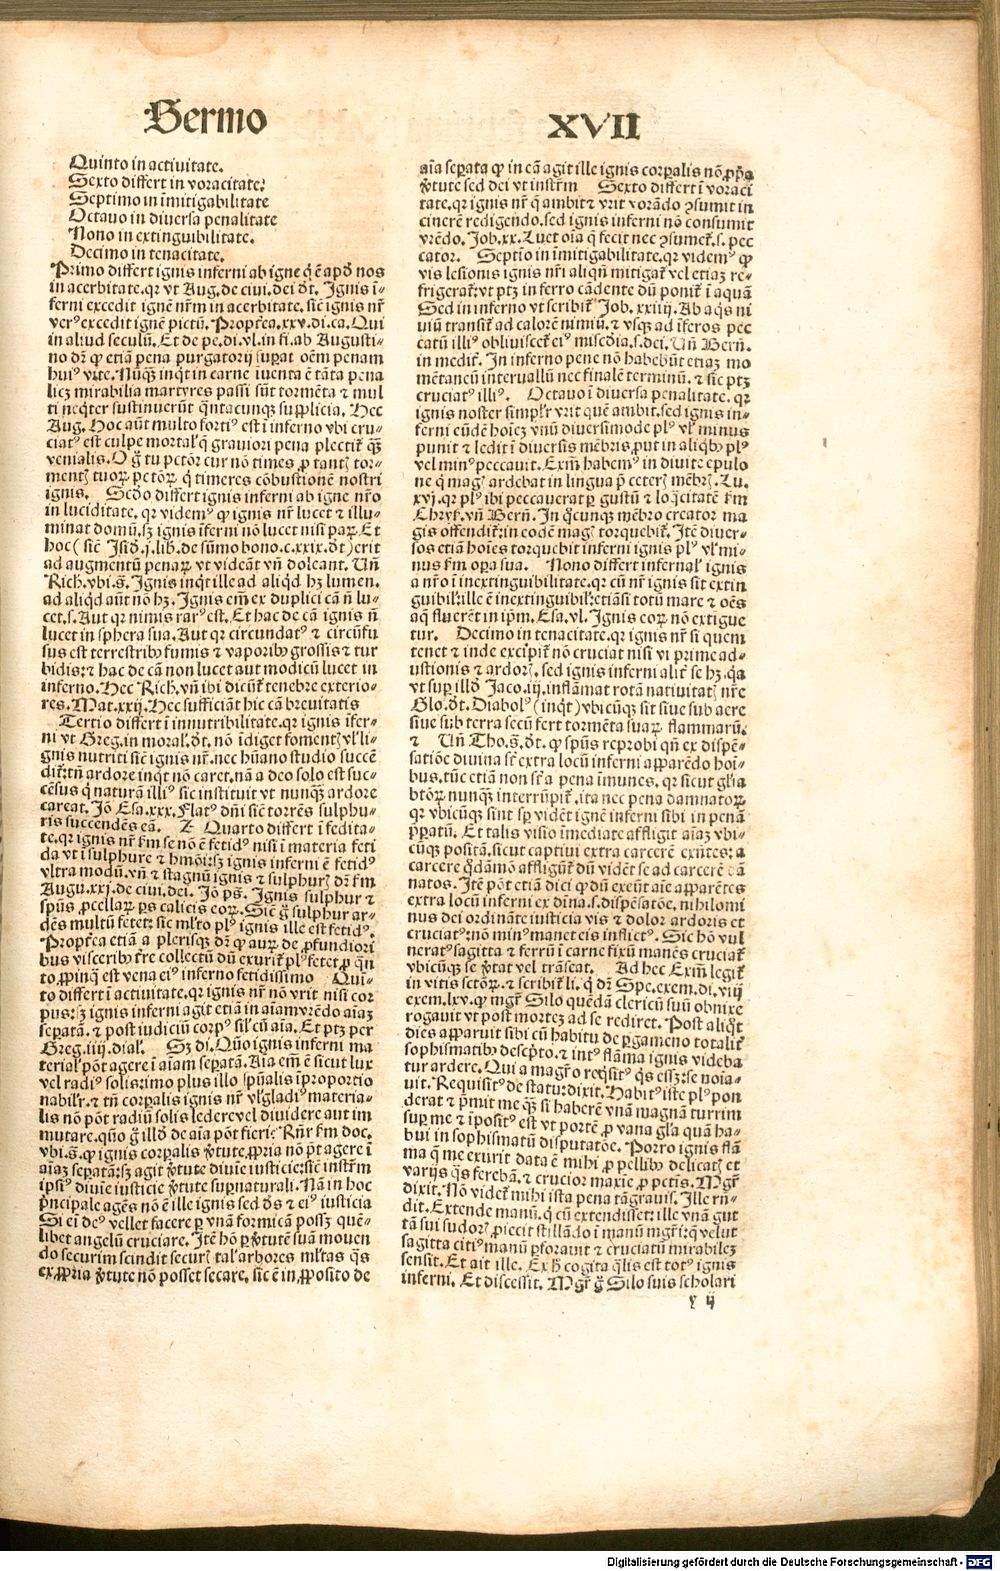 Sermo
XVII
Quinto in actiuitate.
Sexto differt in voracitate:
Septimo in īmitigabilitate
Octauo in diuersa penalitate
Nono in extinguibilitate.
Decimo in tenacitate.
Primo differt ignis inferni ab igne q̄ ē apď nos
in acerbitate.qr vt Aug.de ciui.dei ďt. Ignis ī-
ferni excedit ignē nr̄m in acerbitate. sic̄ ignis nr̄
verꝰ excedit ignē pictū. Propt̄ea.xxv.di.ca.Qui
in aliud seculū. Et de pe.di.vl.in fi.ab Augusti-
no dr̄ ꝙ etiā pena purgatorij suꝑat oēm penam
huiꝰ vite. Nūqꝫ inq̇t in carne iuenta ē tāta pena
licꝫ mirabilia martyres passi sūt tormēta ⁊ mul
ti neq̇ter sustinuerūt q̄ntacunqꝫ supplicia. Hec
Aug. Hoc aūt multo fortiꝰ est ī inferno vbi cru-
ciatꝰ est culpe mortal' q̄ grauiori pena plectit̄ qꝫ
venialis. O g̊ tu petōr cur nō times ꝓ tantꝭ tor-
mentꝭ tuoꝝ petōꝝ q̇ timeres cōbustionē nostri
ignis. Secďo differt ignis inferni ab igne nr̄o
in luciditate. qr videmꝰ ꝙ ignis nr̄ lucet ⁊ illu-
minat domū.sꝫ ignis īferni nō lucet nisi paꝝ. Et
hoc( sic̄ Isiď.j.lib.de sūmo bono.c.xxix.ďt )erit
ad augmentū penaꝝ vt videāt vn̄ doleant. Un̄
Rich.vbi.s̄. Ignis inq̇t ille ad aliq̇d hꝫ lumen.
ad aliq̇d aūt nō hꝫ. Ignis em̄ ex duplici cā n̄ lu-
cet.s. Aut qr nimis rarꝰ est. Et hac de cā ignis n̄
lucet in sphera sua. Aut qr circundatꝰ ⁊ circūfu
sus est terrestribꝫ fumis ⁊ vaporibꝫ grossis ⁊ tur
bidis: ⁊ hac de cā non lucet aut modicū lucet in
inferno. Hec Rich. vn̄ ibi dicūt̄ tenebre exterio-
res. Mat.xxij. Hec sufficiāt hic cā breuitatis
Tertio differt ī innutribilitate.qr ignis īfer-
ni vt Greg.in moral'.ďt. nō īdiget fomentꝭ vl' li-
gnis nutriri sic̄ ignis nr̄. nec hūano studio succē
dit̄: tn̄ ardore inq̇t nō caret.nā a deo solo est suc-
cēsus q̇ naturā illiꝰ sic instituit vt nunqꝫ ardore
careat. Iō Esa.xxx. Flatꝰ dn̄i sic̄ torrēs sulphu-
ris succendēs eā. Quarto differt ī fedita-
te.qr ignis nr̄ ẜm se nō ē fetidꝰ nisi ī materia feti
da vt ī sulphure ⁊ hmōi:sꝫ ignis inferni ē fetidꝰ
vltra modū.vn̄ ⁊ stagnū ignis ⁊ sulphurꝭ dr̄ ẜm
Augu.xxj.de ciui.dei. Iō ps̄. Ignis sulphur ⁊
spūs ꝓcellaꝝ ꝑs calicis eoꝝ. Sic̄ g̊ sulphur ar-
dēs multū fetet: sic ml'to plꝰ ignis ille est fetidꝰ.
Propt̄ea etiā a plerisqꝫ dr̄ ꝙ auꝝ de ꝓfundiori
bus visceribꝫ t̄re collectū dū exurit̄ plꝰ fetet ꝓ q̄n
to ꝓpinq̇ est vena eiꝰ inferno fetidissimo Qui-
to differt ī actiuitate.qr ignis nr̄ nō vrit nisi cor
pus:sꝫ ignis inferni agit etiā in aīam vrēdo aīaꝫ
seꝑatā. ⁊ post iudiciū corpꝰ sil' cū aīa. Et ptꝫ per
Greg.iiij.dial'. Sꝫ di. Quō ignis inferni ma
terial' pōt agere ī aīam seꝑatā. Aīa em̄ ē sicut lux
vel radiꝰ solis:imo plus illo spūalis īproportio
nabil'r. ⁊ tn̄ corꝑalis ignis nr̄ vl' gladiꝰ materia-
lis nō pōt radiū solis ledere vel diuidere aut im
mutare.quō g̊ illď de aīa pōt fieri: Rn̄r ẜm doc.
vbi.s̄. ꝙ ignis corꝑalis v̇tute ꝓpria nō pōt agere ī
aīaꝫ seꝑatā:sꝫ agit v̇tute diuīe iusticie:sic̄ instr̄m
ipsiꝰ diuīe iusticie v̇tute suꝑnaturali. Nā in hoc
pͥncipale agēs nō ē ille ignis sed dꝰs ⁊ eiꝰ iusticia
Si ei deꝰ vellet facere ꝑ vnā formicā possꝫ quē-
libet angelū cruciare. Itē hō ꝑ v̇tutē suā mouen
do securim scindit securꝭ tal' arbores ml'tas q̄s
ex ꝓpria v̇tute nō posset secare. sic ē in ꝓposito de
aīa seꝑata ꝙ in eā agit ille ignis corꝑalis nō ꝓpͥa
v̇tute sed dei vt instr̄m Sexto differt ī voraci
tate.qr ignis nr̄ q̇ ambit̄ vrit vorādo ꝯsumit in
cinerē redigendo.sed ignis inferni nō consumit
vrēdo. Job.xx. Luet oīa q̄ fecit nec ꝯsumet̄.s. pec
cator. Septīo in īmitigabilitate.qr videmꝰ ꝙ
vis lesionis ignis nr̄i aliqn̄ mitigat̄ vel etiaꝫ re-
frigerat̄: vt ptꝫ in ferro cādente dū ponit̄ ī aquā
Sed in inferno vt scribit̄ Job. xxiiij. Ab aq̇s ni
uiū transit̄ ad calorē nimiū. ⁊ vsqꝫ ad īferos pec
catū illiꝰ obliuiscet̄ eiꝰ misc̄dia.s.dei. Un̄ Bern̄.
in medit̄. In inferno pene nō habebūt etiaꝫ mo
mētaneū interuallū nec finalē terminū. ⁊ sic ptꝫ
cruciatꝰ illiꝰ. Octauo ī diuersa penalitate. qr
ignis noster simpl'r vrit quē ambit.sed ignis in-
ferni eūdē hoīeꝫ vnū diuersimode plꝰ vl' minus
punit ⁊ ledit ī diuersis mēbris ꝓut in aliq̇bꝫ plꝰ
vel minꝰ peccauit. Exm̄ habemꝰ in diuite epulo
ne q̇ magꝭ ardebat in lingua p̄ ceterꝭ mēbrꝭ. Lu.
xvj. qr plꝰ ibi peccauerat ꝑ gustū ⁊ loq̇citatē ẜm
Chryẜ. vn̄ Bern̄. In q̇cunqꝫ mēbro creator ma
gis offendit̄: in eodē magꝭ torquebit̄. Itē diuer-
sos etiā hoīes torquebit inferni ignis plꝰ vl' mi-
nus ẜm oꝑa sua. Nono differt infernal' ignis
a nr̄o ī inextinguibilitate.qr cū nr̄ ignis sit extin
guibil':ille ē inextinguibil':etiāsi totū mare ⁊ oēs
aq̄ fluerēt in ipm̄. Esa.vl. Ignis eoꝝ nō extīgue
tur. Decimo in tenacitate.qr ignis nr̄ si quem
tenet ⁊ inde excipit̄ nō cruciat nisi vi prime ad-
ustionis ⁊ ardorꝭ. sed ignis inferni alit̄ se hꝫ. q̇a
vt suꝑ illď Jaco.iij.inflāmat rotā natiuitatꝭ nr̄e
Glo.ďt. Diabolꝰ (inq̇t) vbicūqꝫ sit siue sub aere
siue sub terra secū fert tormēta suaꝝ flammarū.
⁊ Un̄ Tho.s̄.ďt. ꝙ spūs reprobi qn̄ ex dispē-
satiōe diuina st̄ extra locū inferni apparēdo hoī-
bus.tūc etiā non st̄ a pena īmunes. qr sicut gl'ia
btōꝝ nunqꝫ interrūpit̄.ita nec pena damnatoꝝ
qr vbicūqꝫ sint sꝑ vidēt ignē inferni sibi in penā
pͥꝑatū. Et talis visio īmediate affligit aīaꝫ vbi-
cūqꝫ positā.sicut captiui extra carcerē exn̄tes: a
carcere q̇dāmō affligūt̄ dū vidēt se ad carcerē dā
natos. Itē pōt etiā dici ꝙ dū exeūt aīe apparētes
extra locū inferni ex diīna.s.dispēsatōe. nihilomi
nus dei ordināte iusticia vis ⁊ dolor ardoris et
cruciatꝰ: nō minꝰ manet eis inflictꝰ. Sic hō vul
neratꝰ sagitta ⁊ ferrū ī carne fixū manēs cruciat̄
vbicūqꝫ se v̇tat vel trāseat. Ad hec Exm̄ legit̄
in vitis sctōꝝ. ⁊ scribit̄ li. q̇ dr̄ Spe.exem.di.viij
exem.lxv. ꝙ mgr̄ Silo quēdā clericū suū obnixe
rogauit vt post morteꝫ ad se rediret. Post aliq̇t
dies apparuit sibi cū habitu de ꝑgameno totalit̄
sophismatibꝫ descpͥto. ⁊ intꝰ flāma ignis videba
tur ardere. Qui a magr̄o req̇sitꝰ q̇s essꝫ: se noīa-
uit. Requisitꝰ de statu: dixit. Habitꝰ iste plꝰ pon
derat ⁊ pͥmit me qꝫ si haberē vnā magnā turrim
suꝑ me ⁊ īpositꝰ est vt portē ꝓ vana gl'ia quā ha-
bui in sophismatū disputatōe. Porro ignis flā
ma q̄ me exurit data ē mihi ꝓ pellibꝫ delicatꝭ et
varijs q̄s ferebā. ⁊ crucior maxīe ꝓ petīs. Mgr̄
dixit. Nō videt̄ mihi ista pena tā grauis. Ille rn̄-
dit. Extende manū. q̇ cū extendisset: ille vnā gut
tā sui sudorꝭ ꝓiecit stillādo ī manū mgr̄i: q̄ velut
sagitta citiꝰ manū ꝑforauit ⁊ cruciatū mirabileꝫ
sensit. Et ait ille. Ex h̄ cogita q̄lis est totꝰ ignis
inferni. Et discessit. Mgr̄ g̊ Silo suis scholari
y ij
Digitalisierung gefördert durch die Deutsche Forschungsgemeinschaft - DFG